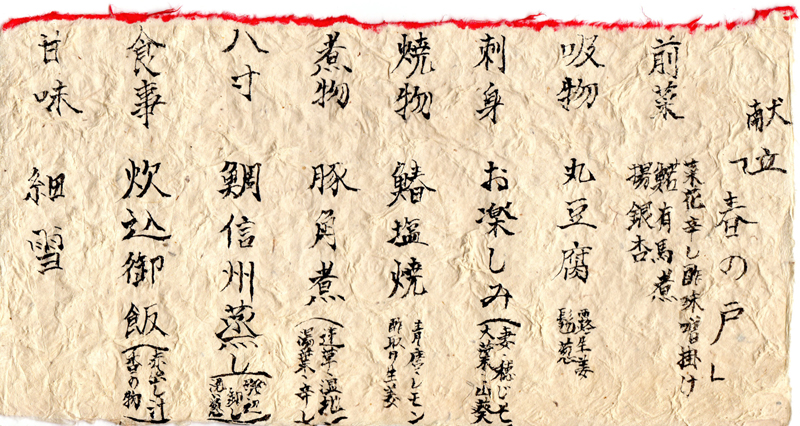 献立
「春の戸」
前菜
菜花辛し酢味噌掛け
鰙有馬煮
揚銀杏
吸物 丸豆腐
露生姜
葱
刺身 お楽しみ
(妻、穂じそ
大葉、山葵
焼物 鰆塩焼
レモン
酢取り生姜
煮物 豚角煮
湯葉、辛し
八寸 鯛信州蒸し
卸し
洗葱
食事 炊込御飯
(赤出し汁
香の物)
甘味 細雪